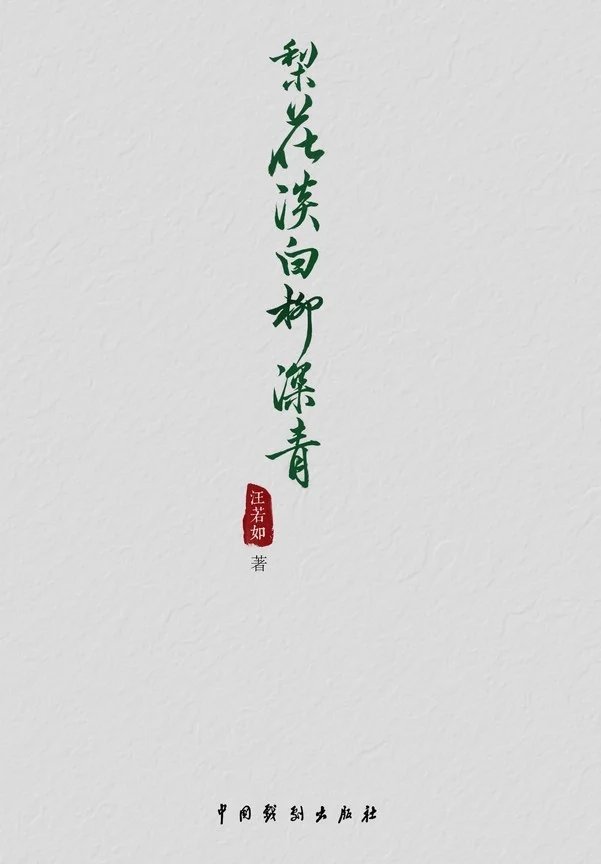 梨花淡白柳深青
汪若如
著
中国戏剧出版社